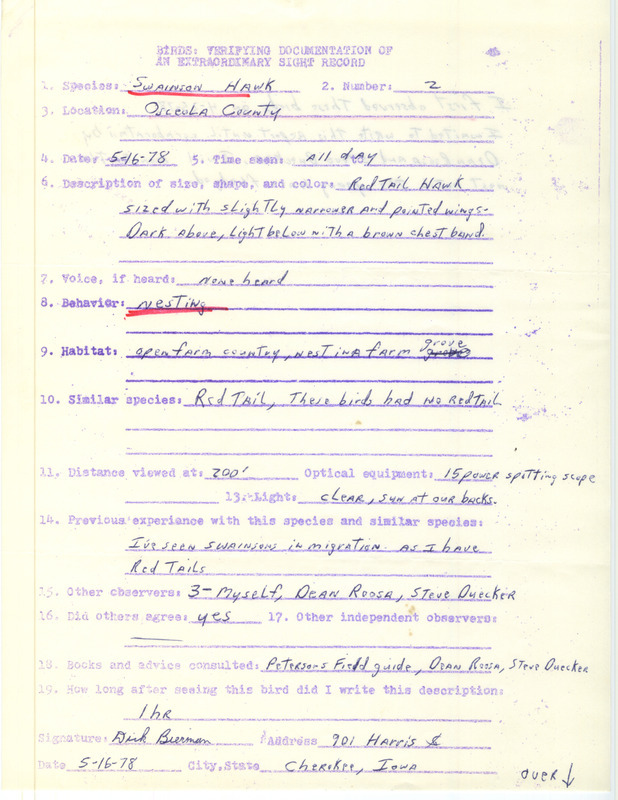 BIRDS: VERIFYING DOCUMENTATION OF
AN EXTRAORDINARY SIGHT RECORD
1. Species: Swainson Hawk 2. Number: 2
3. Location: Osceola County
4. Date: 5-16-78 5. Time seen: All day to
6. Description of size, shape, and color: Red Tail Hawk
sized with slightly narrower and pointed wings-
Dark above, light below with a brown chest band.
7. Voice, if heard: None heard
8. Behavior: Nesting
9. Habitat: open farm country, nest in a farm grove
10. Similar species: Red Tail, These birds had no red tail
11. Distance viewed at: 200' Optical equipment: 15 power spotting scope
13. Light: clear, sun at our backs.
14. Previous experience with this species and similar species:
I've seen Swainsons in migration. As I have
Red Tails
15. Other observers: 3- Myself, Dean Roosa, Steve Duecker
16. Did others agree: yes 17. Other independent observers:
18. Books and advice consulted: Petersons Field guide, Dean Roosa, Steve Duecker
19. How long after seeing this bird did I write this description:
1 hr
Signature: Dick Bierman Address 901 Harris
Date 5-16-78 City, State Cherokee, Iowa
over ↓